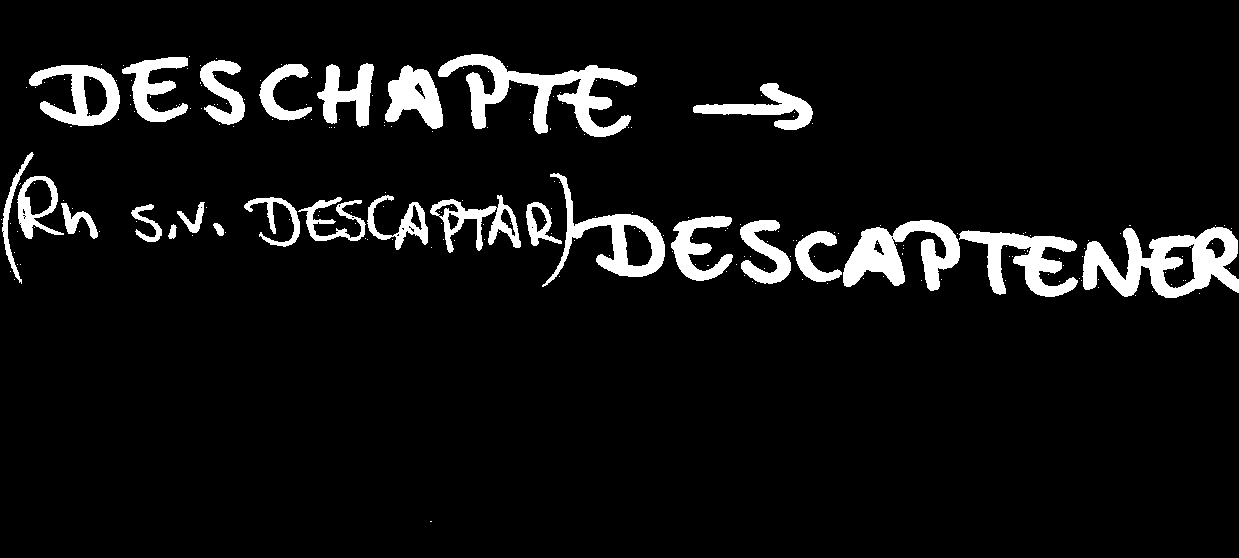 DESCHAPTE →
(Rn s.v. DESCAPTAR) DESCAPTENER